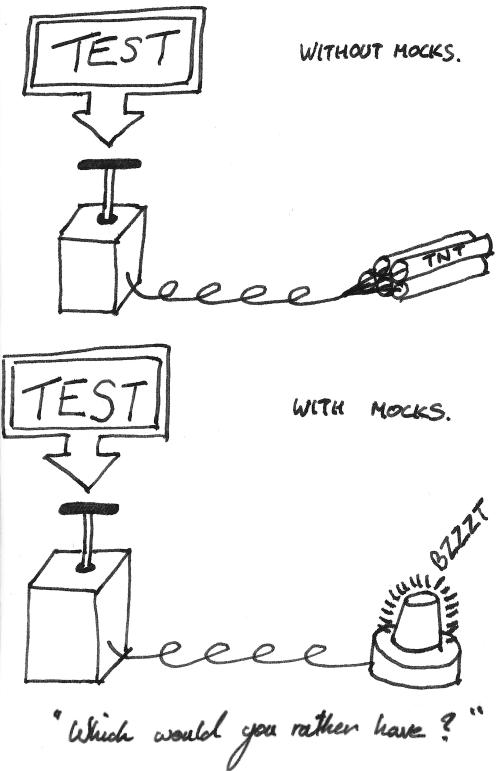 TEST
WITHOUT MOCKS.
TNT
TEST
WITH MOCKS.
BZZZT
"Which would you rather have?"